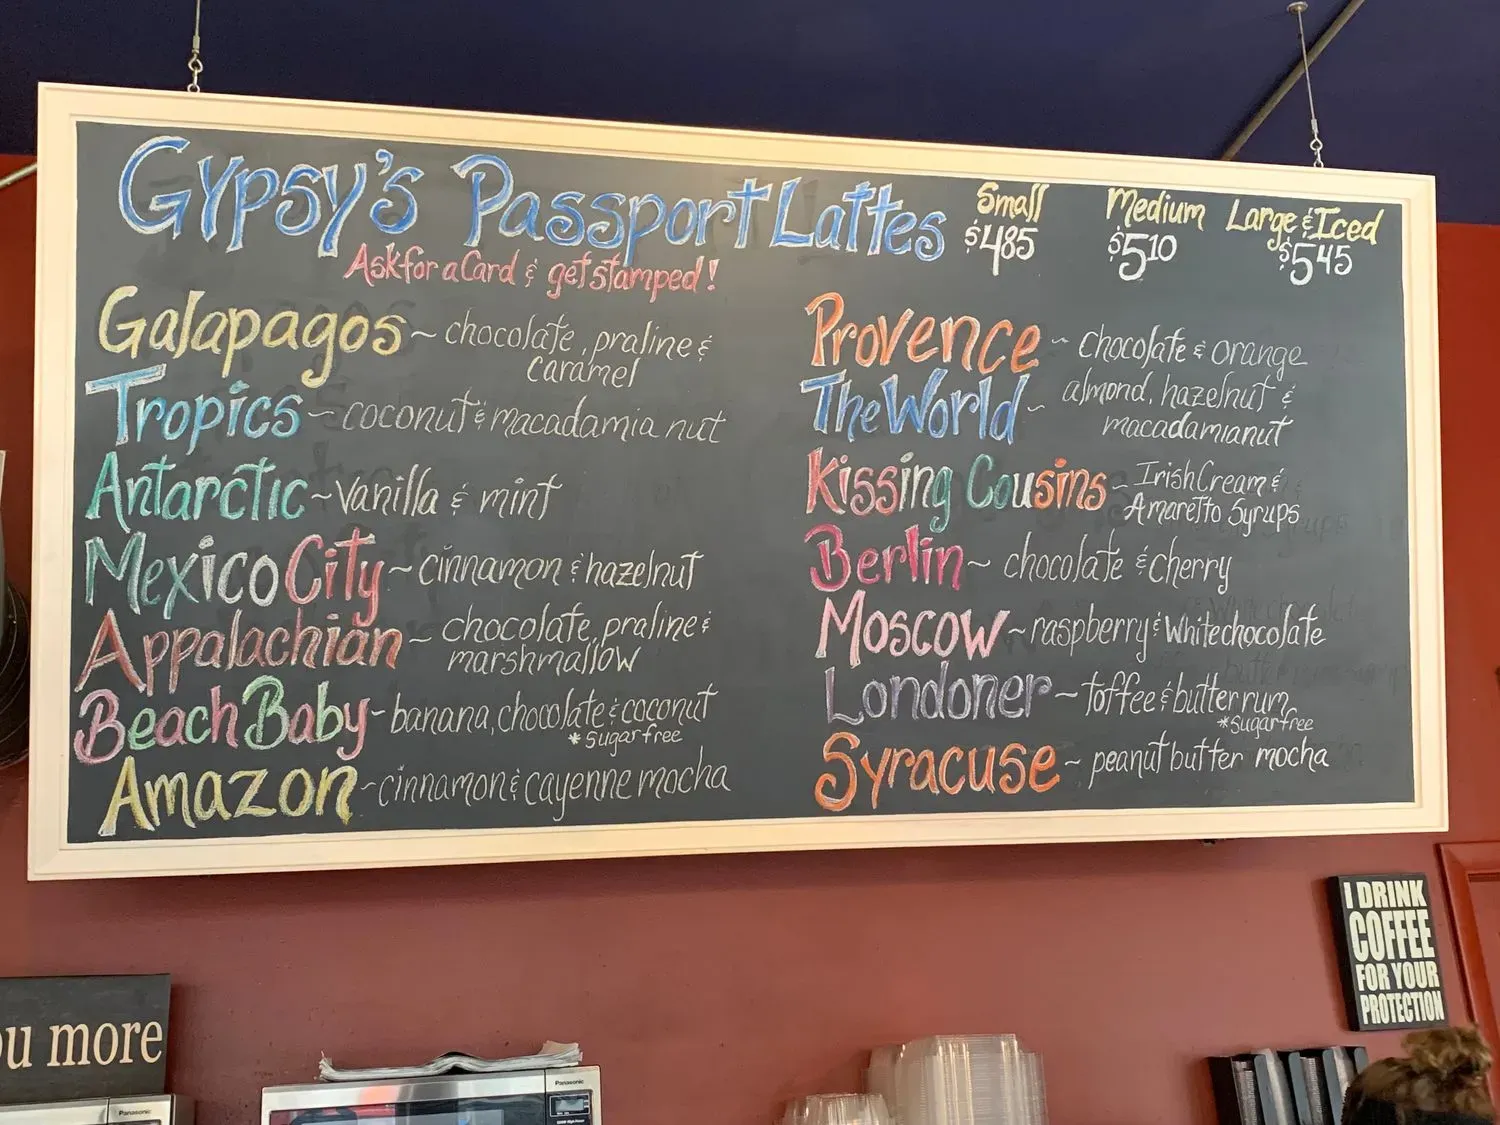 Gypsy's Passport Lattes
Small Medium Large & Iced
$4.85 $5.10 $5.45
Ask for a Card & get stamped!
Galapagos ~ chocolate, praline &
caramel
Tropics ~ coconut & macadamia nut
Antarctic ~ vanilla & mint
Mexico City ~ cinnamon & hazelnut
Appalachian ~ chocolate, praline &
marshmallow
Beach Baby ~ banana, chocolate & coconut
*sugar free
Amazon ~ cinnamon & cayenne mocha
Provence ~ chocolate & orange
The World ~ almond, hazelnut &
macadamia nut
Kissing Cousins ~ Irish Cream &
Amaretto Syrups
Berlin ~ chocolate & cherry
Moscow ~ raspberry & white chocolate
Londoner ~ toffee & butter rum
*Sugar free
Syracuse ~ peanut butter mocha
I DRINK
COFFEE
FOR YOUR
PROTECTION
ou more
Panasonic
Panasonic